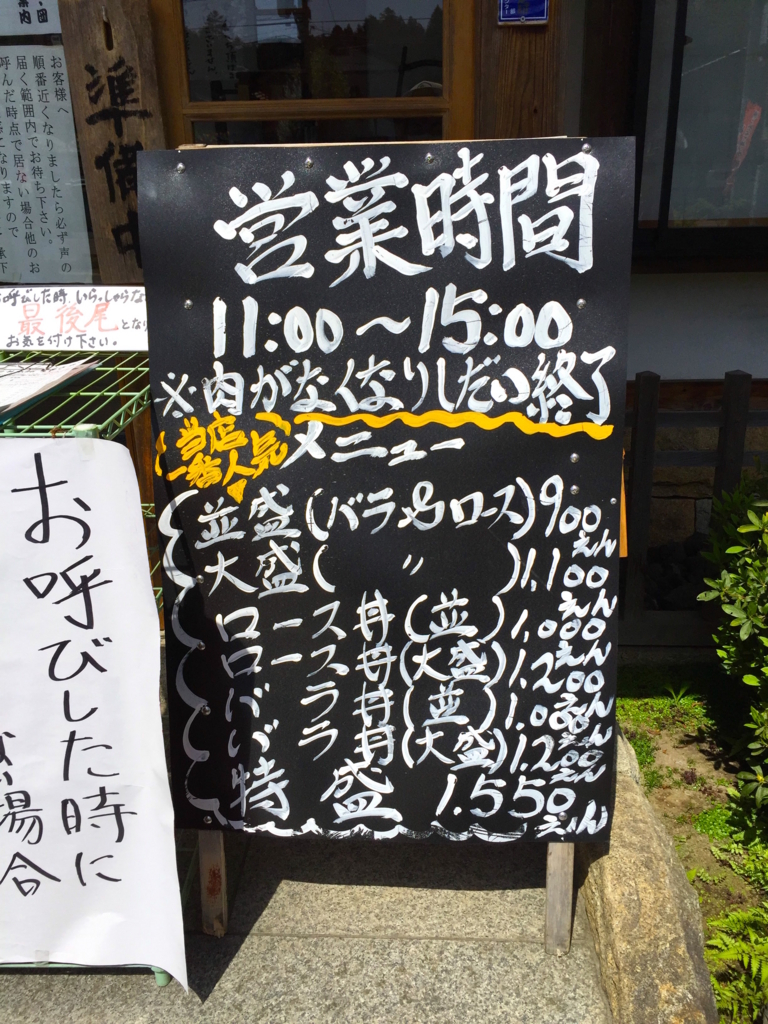 準備中
お客様へ
順番近くなりましたら必ず声の
届く範囲内でお待ち下さい。
呼んだ時点で居ない場合他のお
最後尾となり
お気を付け下さい。
お呼びした時に
ない場合
営業時間
11:00〜15:00
※肉がなくなりしだい終了
当店
一番人気
メニュー
並盛(バラ&ロース)900えん
大盛( 〃 )1,100えん
ロース丼(並)1,000えん
ロース丼(大盛)1,200えん
バラ丼(並)1,000えん
バラ丼(大盛)1,200えん
特盛 1,550えん